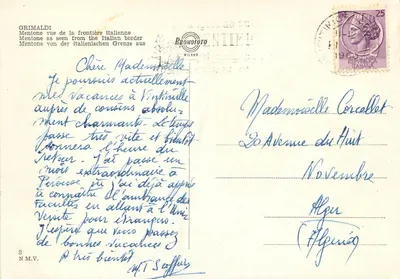 GRIMALDI
Mentone vue de la frontière Italienne
Mentone as seen from the Italian border
Mentone von der italienischen Grenze aus
Bromofoto
MILANO
25
Chère Mademoiselle
Je poursuis actuellement
mes vacances à Vintimille
auprès de cousins absolu-
ment charmants. Le temps
passe très vite et bientôt
sonnera l'heure du
retour. J'ai passé un
mois extraordinaire à
Perouse où j'ai déjà appris
à connaître l'ambiance des
Facultés en allant à l'Uni-
versité pour étrangers.
J'espère que vous passez
de bonnes vacances
A très bientôt
Mademoiselle Corcellet
20 Avenue du Huit
Novembre
Alger
(Algérie)
8
N.M.V.